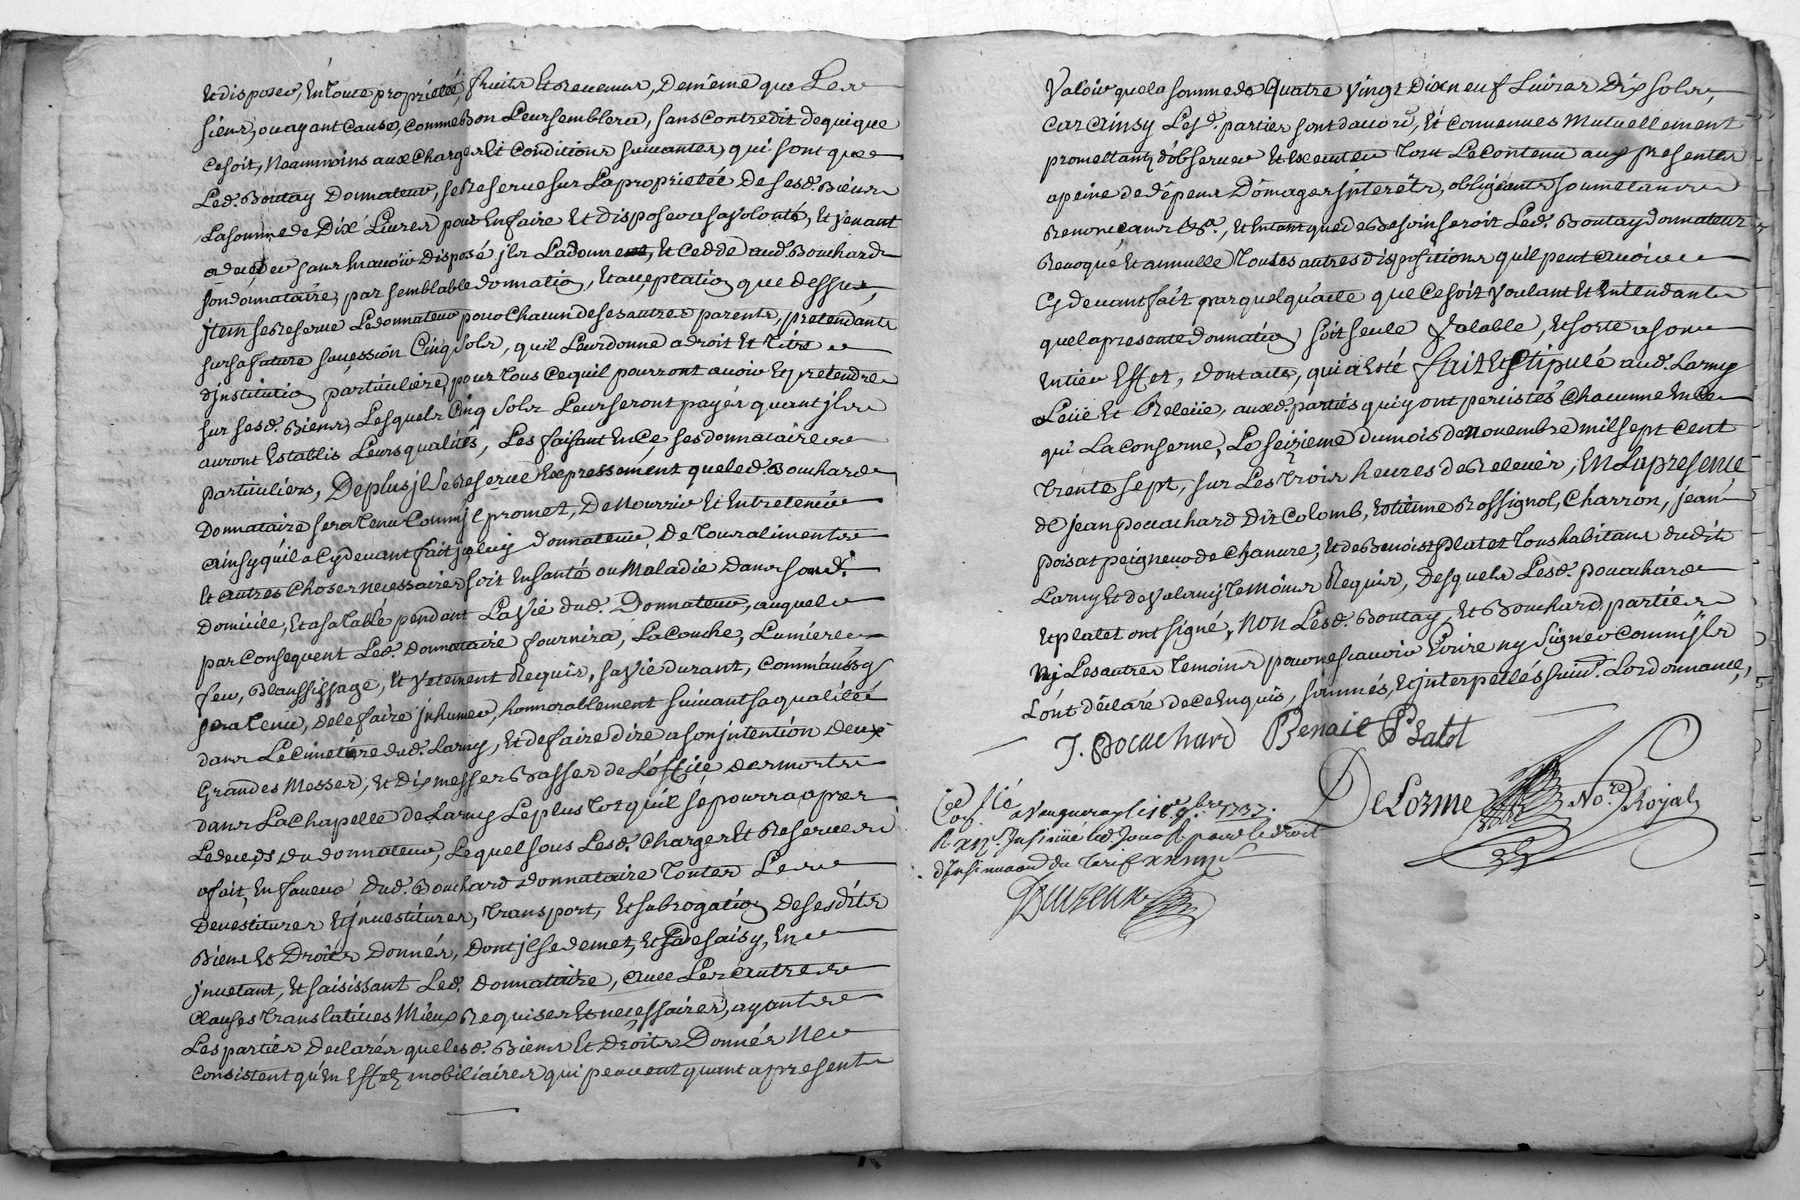 Et disposer, En Toute proprieteé, fruits Et Revenus, De meme que Les
siens, ou ayant Cause, Comme Bon Leur semblera, sans Contredit de qui que
Ce soit, Neammoins aux Charges Et Conditions suivantes, qui sont que
Led. Boutay Donnateur, se Reserve sur La proprieteé De sesd. Biens
La somme de Dix Livres pour En faire Et disposer a sa volonté, Et venant
a deceder sans En avoir Disposé jl La donne, Et Cedde aud. Bouchard
son donnataire, par semblable donnatio, Et acceptatio que dessus,
jtem se Reserve Le donnateur pour Chacun de ses autres parents, pretendants
sur sa future succession Cinq sols, qu'il Leur donne a droit Et Titre
d'jnstitutio particuliere, pour Tous Ce quil pourront avoir Et pretendre
sur sesd. Biens, Lesquels Cinq sols Leur seront payés quant jls
auront Establis Leurs qualités, Les faisant En Ce, ses donnataires
particuliers, De plus jl se Reserve Expressement que led. Bouchard
Donnataire sera Tenu Comm'jl promet, De Nourrir Et Entretenir
ainsy qu'il a Cy devant fait jceluy donnateur, De Tous aliments
Et autres Choses necessaires soit En santé ou Maladie Dans sond.
Domicile, Et a sa Table pendant La Vie dud. Donnateur, auquel
par Consequent Led. Donnataire fournira, La Couche, Lumiere
feu, Blanssissage, Et Vetement Requis, sa Vie durant, Comm'aussy
sera Tenu, de le faire jnhumer, honnorablement suivant sa qualiteé
dans Le Cimetiere dud. Larny, Et de faire dire a son jntention Deux
Grandes Messes, Et Dix messes Basses de L'office des morts
dans La Chapelle de Larny Le plus Tot qu'il se pourra apres
Le deceds du donnateur, Lequel sous Lesd. Charges Et Reserves
a fait, En faveur Dud. Bouchard Donnataire Toutes Les
Devestitures Et jnvestitures, Transport, Et subrogatio De ses dits
Biens Et Droits Donnés, Dont jl se demet, Et se desaisy, En
jnvetant, Et saisissant Led. Donnataire, avec Les autres
Clauses Translatives Mieux Requises Et necessaires, ayants
Les parties Declarés que lesd. Biens Et Droits Donnés Ne
Consistent qu'En Effets mobiliaires qui peuvent quant a present
Valoir que la somme de Quatre Vingt Dix neuf Livres Dix sols,
Car ainsy Lesd. parties sont d'accord, Et Convenues Mutuellement
promettants d'observer Et Executer Tout Le Contenu aux presentes
a peine de depens Domages jnterets, obligeants soumetants
Renonceans &a., Et En tant que de Besoin seroit Led. Boutay donnateur
Revoque Et annulle Toutes autres dispositions qu'il peut avoir
Cy devant fait par quelqu'acte que Ce soit Voulant Et Entendant
que la presente donnatio soit seule Valable, Et sorte a son
Entier Effet, dont acte, qui a Esté fait Et stipulé aud. Larny
Leüe Et Releüe, auxd. parties qui y ont percistés Chacunne En Ce
qui La Conserne, Le seizieme du mois de novembre mil sept Cent
Trente sept, sur Les Trois heures de Relevée, En La presence
de Jean Pocachard dit Colomb, Estienne Rossignol, Charron, jean
poisat peigneur de Chanvre, Et de Benoist Platet Tous habitans dudit
Larny Et de Valauy Temoins Requis, Desquels Lesd. Pocachard
Et platet ont signé, Non Lesd. Boutay, Et Bouchard parties
Ny Les autres Temoins pour ne scavoir Ecrire ny Signer Comm'jls
L'ont déclaré de Ce Enquis, sommés, Et jnterpellés suiv. Lordonnance,
J. Pocachard Benoit Platet
DeLorme No.re Royal
a Vaugneray le 18e 9bre 1737.
R. xij s. Insinüe led. Jour R. pour le droit
d'Insinuaon du Tarif